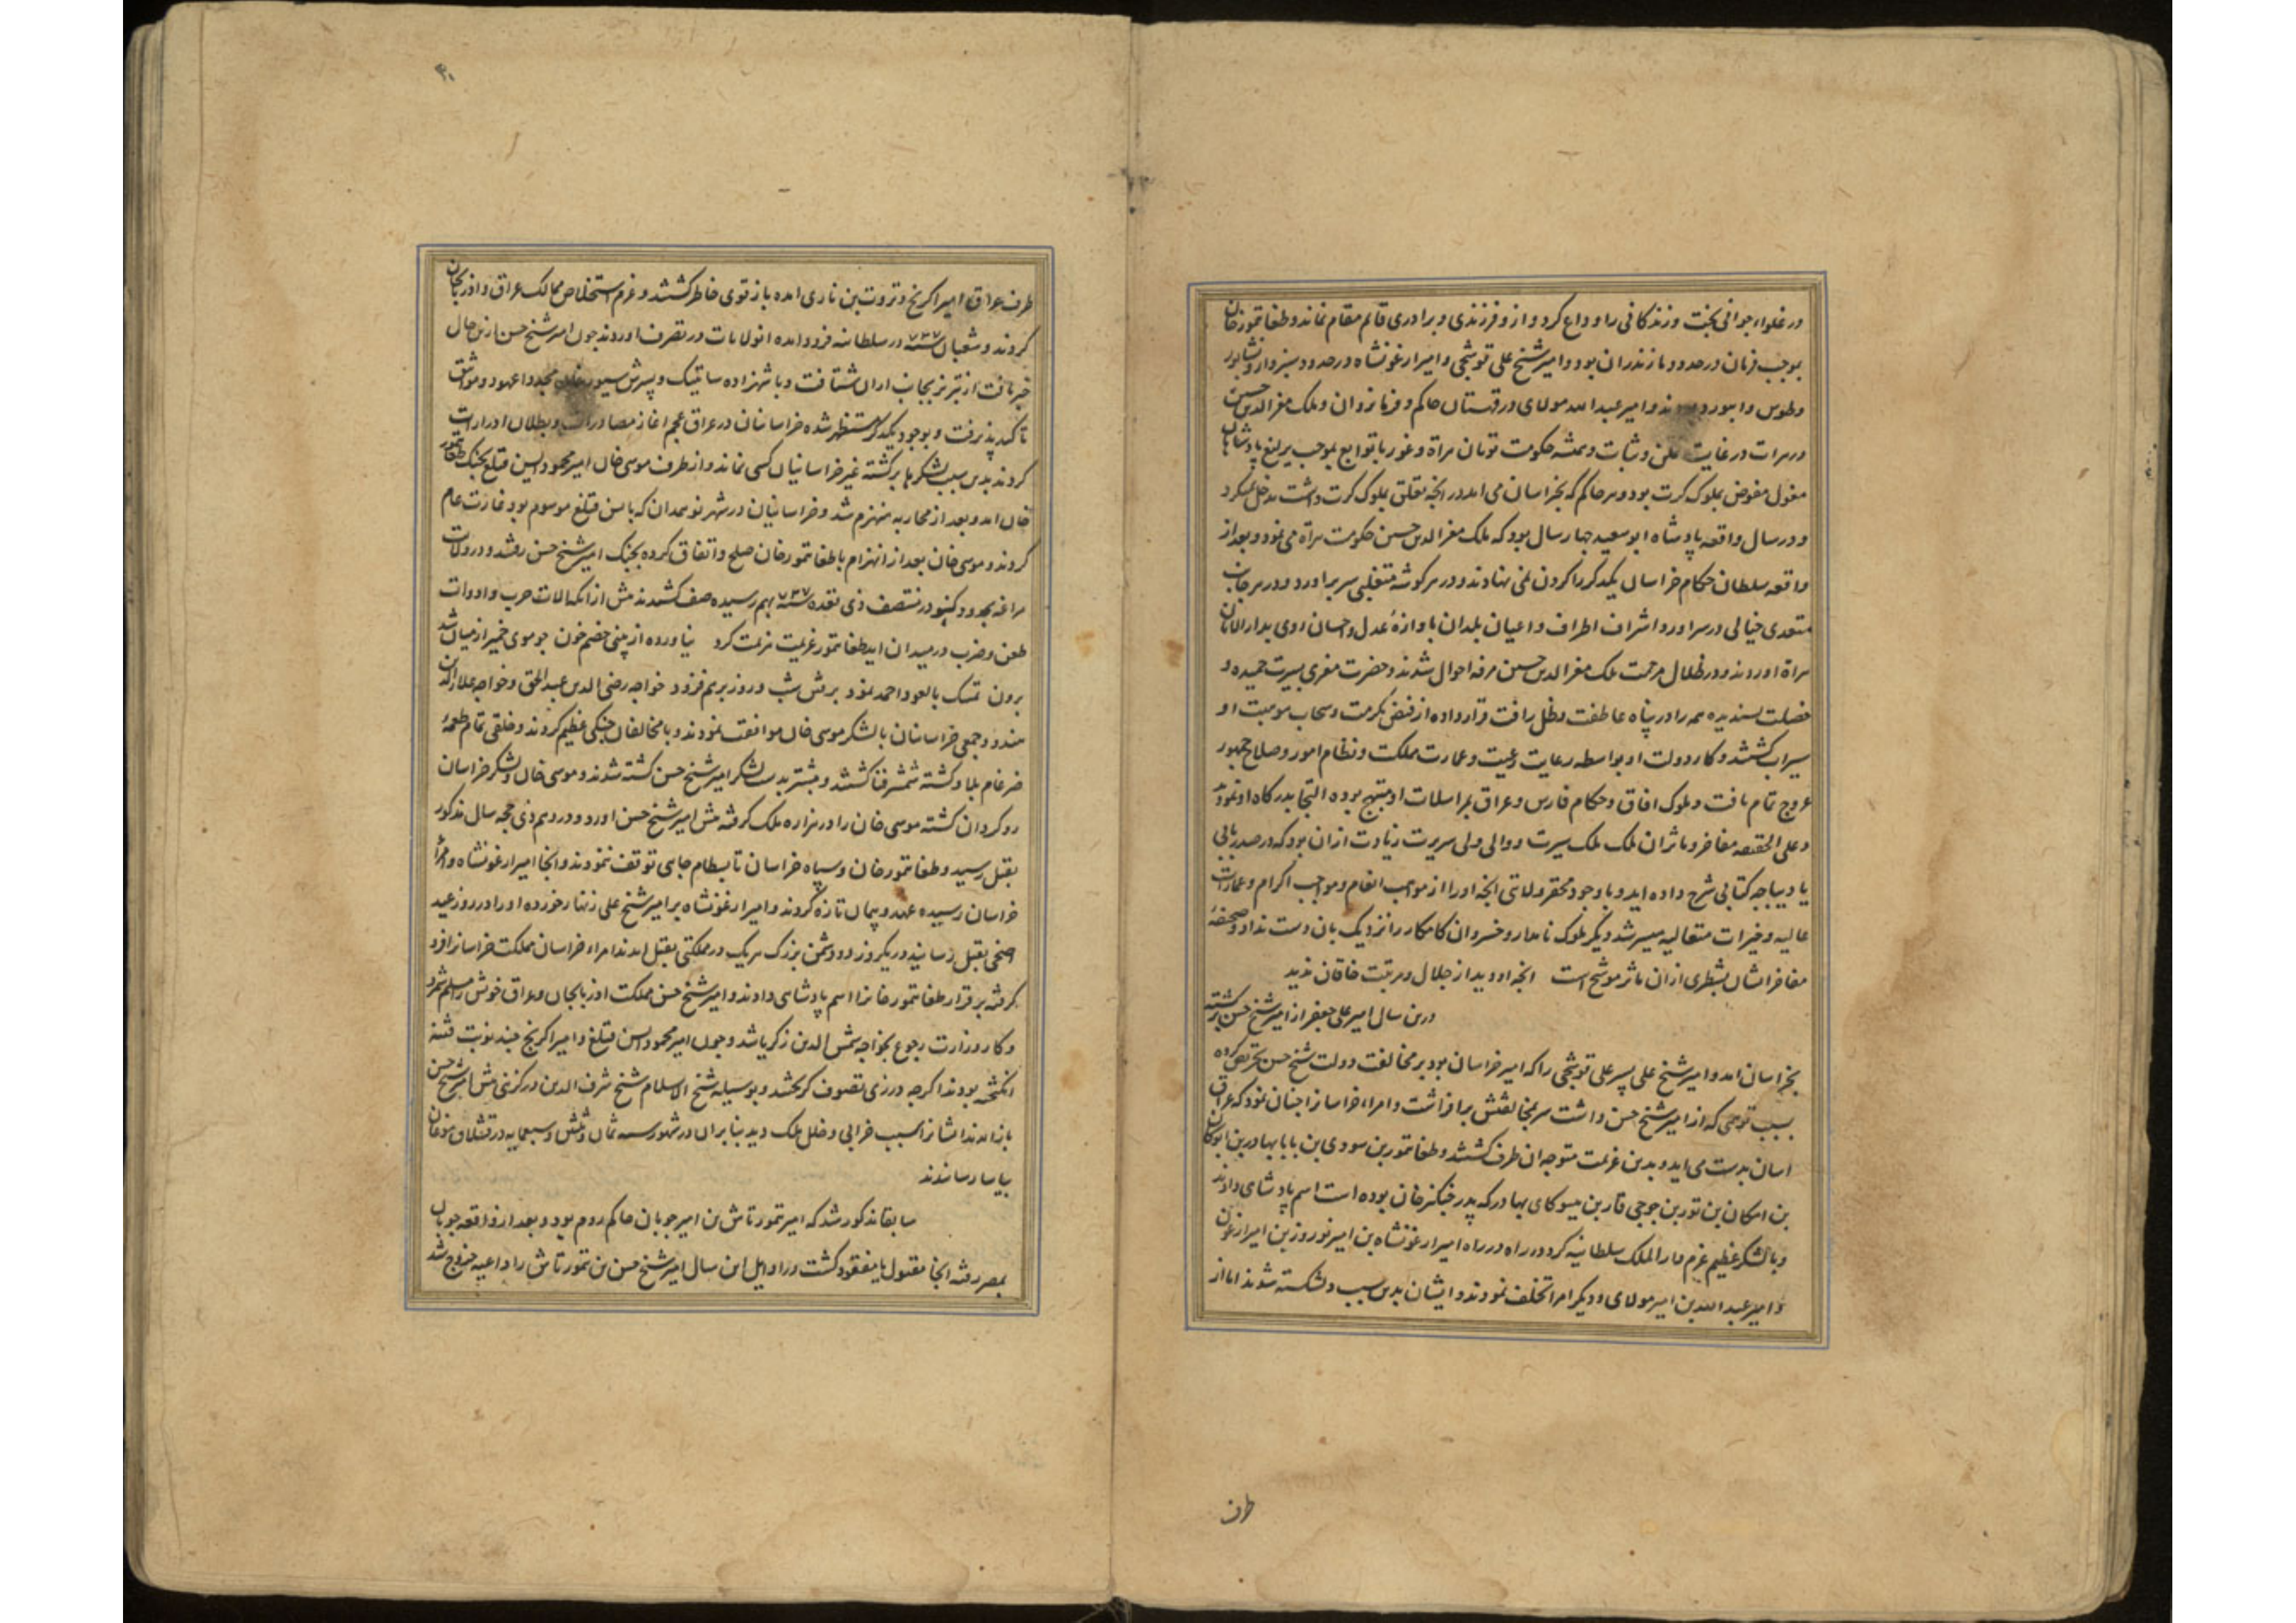 در غلواء جوانی بخت و زندکانی را وداع کرد و ازو فرزندی و برادری قایم مقام نماند و طغاتمور خان
بموجب فرمان در حدود مازندران بود و امیر شیخ علی قوشجی و امیر ارغونشاه در حدود سبزوار و نشابور
و طوس و ابیورد بودند و امیر عبدالله مولای در قهستان حاکم و فرمانروان و ملک معزالدین حسین
در هرات در غایت تمکن و ثبات و همیشه حکومت تومان هراة و غور با توابع بموجب یرلیغ پادشاهان
مغول مفوض بملوک کرت بود و هر حاکم که بخراسان می امد در انجه تعلق بملوک کرت داشت مدخل نمیکرد
و در سال واقعه پادشاه ابوسعید جهار سال بود که ملک معزالدین حسین حکومت هراة می نمود و بعد از
واقعه سلطان حکام خراسان یکدیکر را کردن نمی نهادند و در هر کوشه متغلبی سر براورد و در هر جانب
متعدی خیالی در سر اورد و اشراف اطراف و اعیان بلدان باوازهٔ عدل و احسان او روی بدار الامان
هراة اوردند و در ظلال مرحمت ملک معزالدین حسین مرفه احوال شدند و حضرت معزی بسیرت حمیده و
خصلت پسندیده همه را در پناه عاطفت و ظل رافت قرار داده از فیض مکرمت و سحاب موهبت او
سیراب کشتند و کار دولت او بواسطه رعایت رعیت و عمارت مملکت و نظام امور و صلاح جمهور
عروج تمام یافت و ملوک افاق و حکام فارس و عراق بمراسلات او مبتهج بوده التجا بدرکاه او نمودند
و علی الحقیقه مفاخر و ماثر ان ملک ملک سیرت و والی ولی سریرت زیادت از ان بود که در صدر بابی
یا دیباجه کتابی شرح داده اید و با وجود محقر ولایتی انجه او را از مواهب انعام و مواجب اکرام و عمارات
عالیه و خیرات متعالیه میسر شد دیکر ملوک نامدار و خسروان کامکار را نزدیک بان دست نداد و صحیفهٔ
مفاخر ایشان بشطری از ان ماثر موشح است انجه او دید از جلال و مرتبت خاقان ندید
درین سال امیر علی جعفر از امیر شیخ حسن برکشته
بخراسان امد و امیر شیخ علی پسر علی قوشجی را که امیر خراسان بود بر مخالفت دولت شیخ حسن تحریص کرده
بسبب توهمی که از امیر شیخ حسن داشت سر بمخالفتش برافراشت و امراء خراسانرا جنان نمود که عراق
اسان بدست می اید و بدین عزیمت متوجه ان طرف کشتند و طغاتمور بن سودی بن بابا بهادر بن ابوکان
بن امکان بن تور بن جوجی قار بن ییسوکای بهادر که پدر جنکیز خان بوده است اسم پادشاهی دادند
و با لشکر عظیم عزم دار الملک سلطانیه کرد و در راه امیر ارغونشاه بن امیر نوروز بن امیر ارغون
و امیر عبدالله بن امیر مولای و دیکر امرا تخلف نمودند و ایشان بدین سبب دلشکسته شدند اما از
طرف
۴۰
طرف عراق امیر اکرنج و تروت بن ناری امده باز قوی خاطر کشتند و عزم استخلاص ممالک عراق و اذربیجان
کردند و شعبان سنه ۷۳۷ در سلطانیه فرود امده ان ولایات در تصرف اوردند جون امیر شیخ حسن ازین حال
خبر یافت از تبریز بجانب اران شتافت و با شهزاده ساتی بیک و پسرش سیورغان مجددا عهود و مواثیق
تاکید پذیرفت و بوجود یکدیکر مستظهر شده خراسانیان در عراق عجم اغاز مصادرات و بطلان ادرارات
کردند بدین سبب لشکرها برکشته غیر خراسانیان کسی نماند و از طرف موسی خان امیر محمود ایسن قتلغ بجنک طغاتمور
خان امد و بعد از محاربه منهزم شد و خراسانیان در شهر نو همدان که بایسن قتلغ موسوم بود غارت عام
کردند و موسی خان بعد از انهزام با طغاتمور خان صلح و اتفاق کرده بجنک امیر شیخ حسن رفتند و در ولایت
مراغه بحدود در منتصف ذی قعده سنه ۷۳۷ بهم رسیده صف کشیدند پیش از انکه الات حرب و ادوات
طعن و ضرب در میدان اید طغاتمور عزیمت هزیمت کرد نیاورده از بینی خصم خون جو موی خمیر از میان شد
برون تمسک بالعود احمد نمود برفتن شب و روز برهم فزود خواجه رضی الدین عبدالحق و خواجه علاءالدین
هندو و جمعی خراسانیان با لشکر موسی خان موافقت نمودند و با مخالفان جنکی عظیم کردند و خلقی تمام طعمهٔ
ضرغام بلا و کشته شمشیر فنا کشتند و بیشتر بدست لشکر امیر شیخ حسن کشته شدند و موسی خان و لشکر خراسان
روکردان کشته موسی خان را در هزاره ملک کرفته پیش امیر شیخ حسن اوردند و در دهم ذی حجه سال مذکور
بقتل رسید و طغاتمور خان و سپاه خراسان تا بسطام جایی توقف ننمودند و انجا امیر ارغونشاه و امراء
خراسان رسیده عهد و پیمان تازه کردند و امیر ارغونشاه بر امیر شیخ علی زنهار خورده او را در روز عید
اضحی بقتل رسانید در یکروز دو دشمن بزرک هر یک در مملکتی بقتل امدند امراء خراسان مملکت خراسانرا فرو
کرفته بر قرار طغاتمور خانرا اسم پادشاهی دادند و امیر شیخ حسن مملکت اذربایجان و عراق خویش را مسلم شمرد
و کار وزارت رجوع بخواجه شمس الدین زکریا شد و جون امیر محمود ایسن قتلغ و امیر اکرنج جند نوبت فتنه
انکیخته بودند اکرجه در زی تصوف کریختند و بوسیله شیخ الاسلام شیخ شرف الدین درکزینی پیش امیر شیخ حسن
باز امدند ایشانرا سبب خرابی و خلل ملک دید بنابران در شهور سنه ثمان و ثلثین و سبعمایه در قشلاق موغان
بیاسا رسانیدند
سابقا مذکور شد که امیر تمورتاش بن امیر جوبان حاکم روم بود و بعد از واقعه جوبان
بمصر رفته انجا مقتول یا مفقود کشت در اوایل این سال امیر شیخ حسن بن تمورتاش را داعیه خروج شد